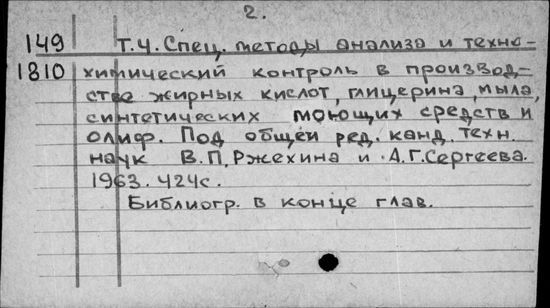 2.
149 Т.4. Спец. методы анализа и техно-
1810 химический контроль в производ-
стве жирных кислот, глицерина, мыла,
синтетических моющих средств и
олиф. Под общей ред. канд. техн.
наук В.П. Ржехина и А.Г. Сергеева.
1963. 424с.
Библиогр. в конце глав.